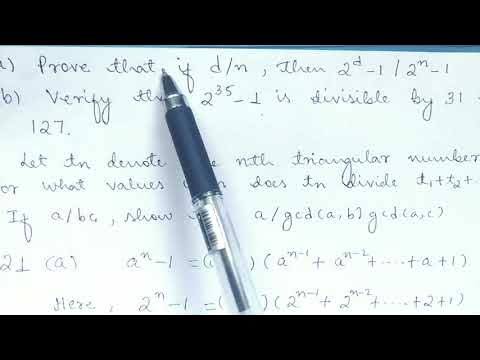 a) Prove that if d/n, then 2^d-1 / 2^n-1
b) Verify 2^35-1 is divisible by 31
127.
Let tn denote nth triangular number
what values does tn divide t1+t2+
If a/bc, show a/gcd(a,b)gcd(a,c)
21 (a) a^n-1 = ( )(a^n-1+a^n-2+....+a+1)
Here, 2^n-1 = ( )(2^n-1+2^n-2+....+2+1)